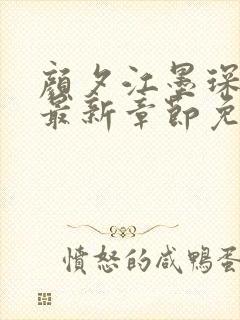 顔夕江墨琛
最新章節免
憤怒的咸鴨蛋